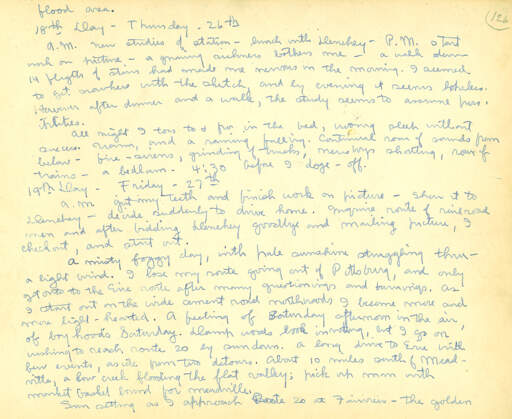 flood area.
126
18th Day - Thursday - 26th
A.M. new studies of station - lunch with Blenehey - P.M. start
work on picture - a gnawing sickness bothers me - a walk down
14 flights of stairs had made me nervous in the morning. I seemed
to get nowhere with the sketch, and by evening it seems hopeless.
However after dinner and a walk, the study seems to assume pos-
sibilities.
All night I toss to & fro in the bed, wooing sleep without
success. Groans, and a ramming feeling. Continual roar of sounds from
below - fire-sirens, grinding of trucks, newsboys shouting, roar of
trains - a bedlam. 4:30 before I doze-off.
19th Day - Friday - 27th
a.m. grit my teeth and finish work on picture - show it to
Blenehey - decide suddenly to drive home. Inquire route of railroad
men and after bidding Blenehey goodbye and mailing picture, I
check out, and start out.
A misty foggy day, with pale sunshine struggling thru -
a light wind. I lose my route going out of Pittsburg, and only
get onto the Erie route after many questionings and turnings. As
I start out on the wide cement road northwards I become more and
more light-hearted. A feeling of Saturday afternoon in the air,
of boyhoods Saturday. Damp woods look inviting, but I go on,
wishing to reach route 20 by sundown. A long drive to Erie with
few events, aside from two detours. About 10 miles south of Mead-
ville, a low creek flooding the flat valley; pick up man with
market basket bound for meadville.
Sun setting as I approach Route 20 at Fairview - the golden